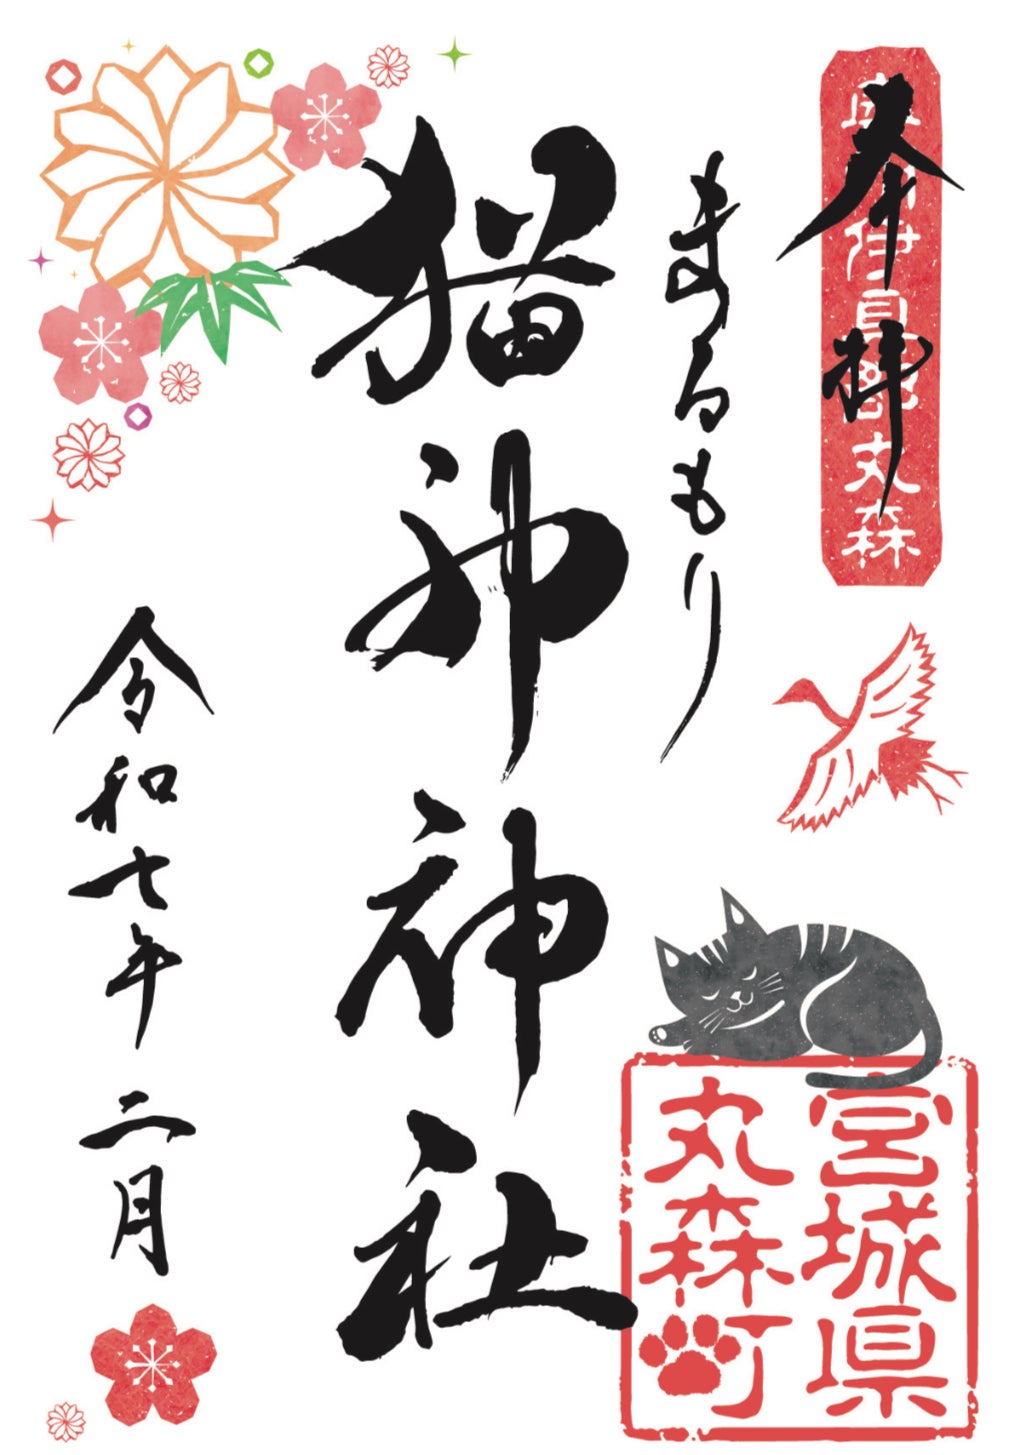 奉拝
奥州伊具郡丸森
まるもり
猫神神社
宮城県
丸森町
令和七年二月